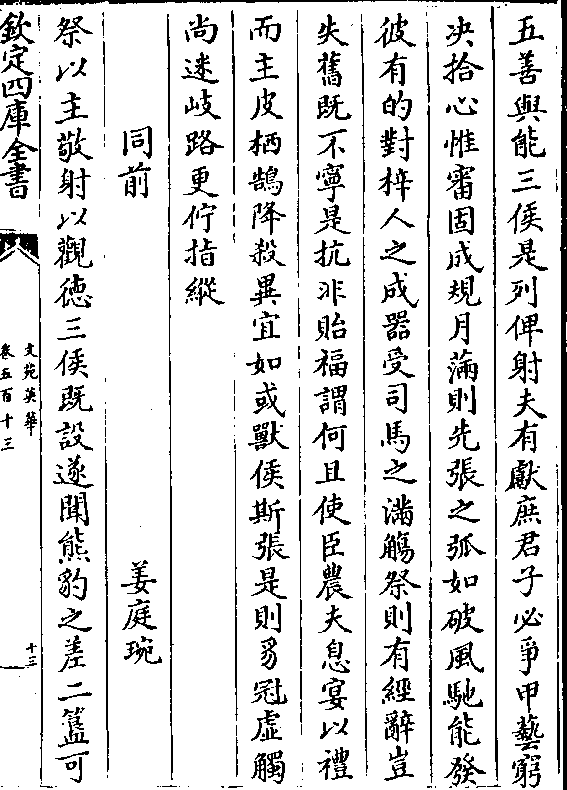 五善與能三侯是列俾射夫有獻庶君子必爭甲藝窮
决拾心惟審固成規月滿則先張之弧如破風馳能發
彼有的對梓人之成器受司馬之滿觴祭則有經辭豈
失舊既不寧是抗非貽福謂何且使臣農夫息宴以禮
而主皮栖鵠降殺異宜如或獸侯斯張是則豸冠虚觸
尚迷岐路更佇指縱
同前
姜庭琬
祭以主敬射以觀德三侯既設遂聞熊豹之差二簋可
欽定四庫全書
文苑英華
卷五百十三
十三